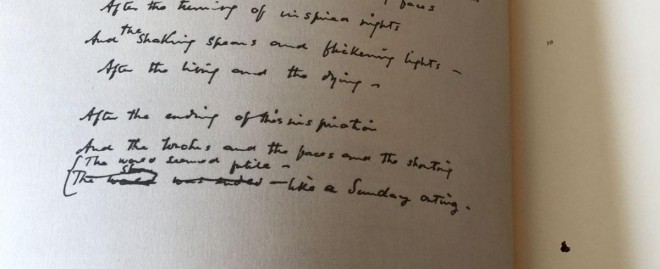 faces
After the turning of inspired nights
And the shaking spears and flickering lights –
After the living and the dying –
After the ending of this inspiration
And the torches and the faces and the shouting
The world seemed futile –
The was ended – like a Sunday outing.